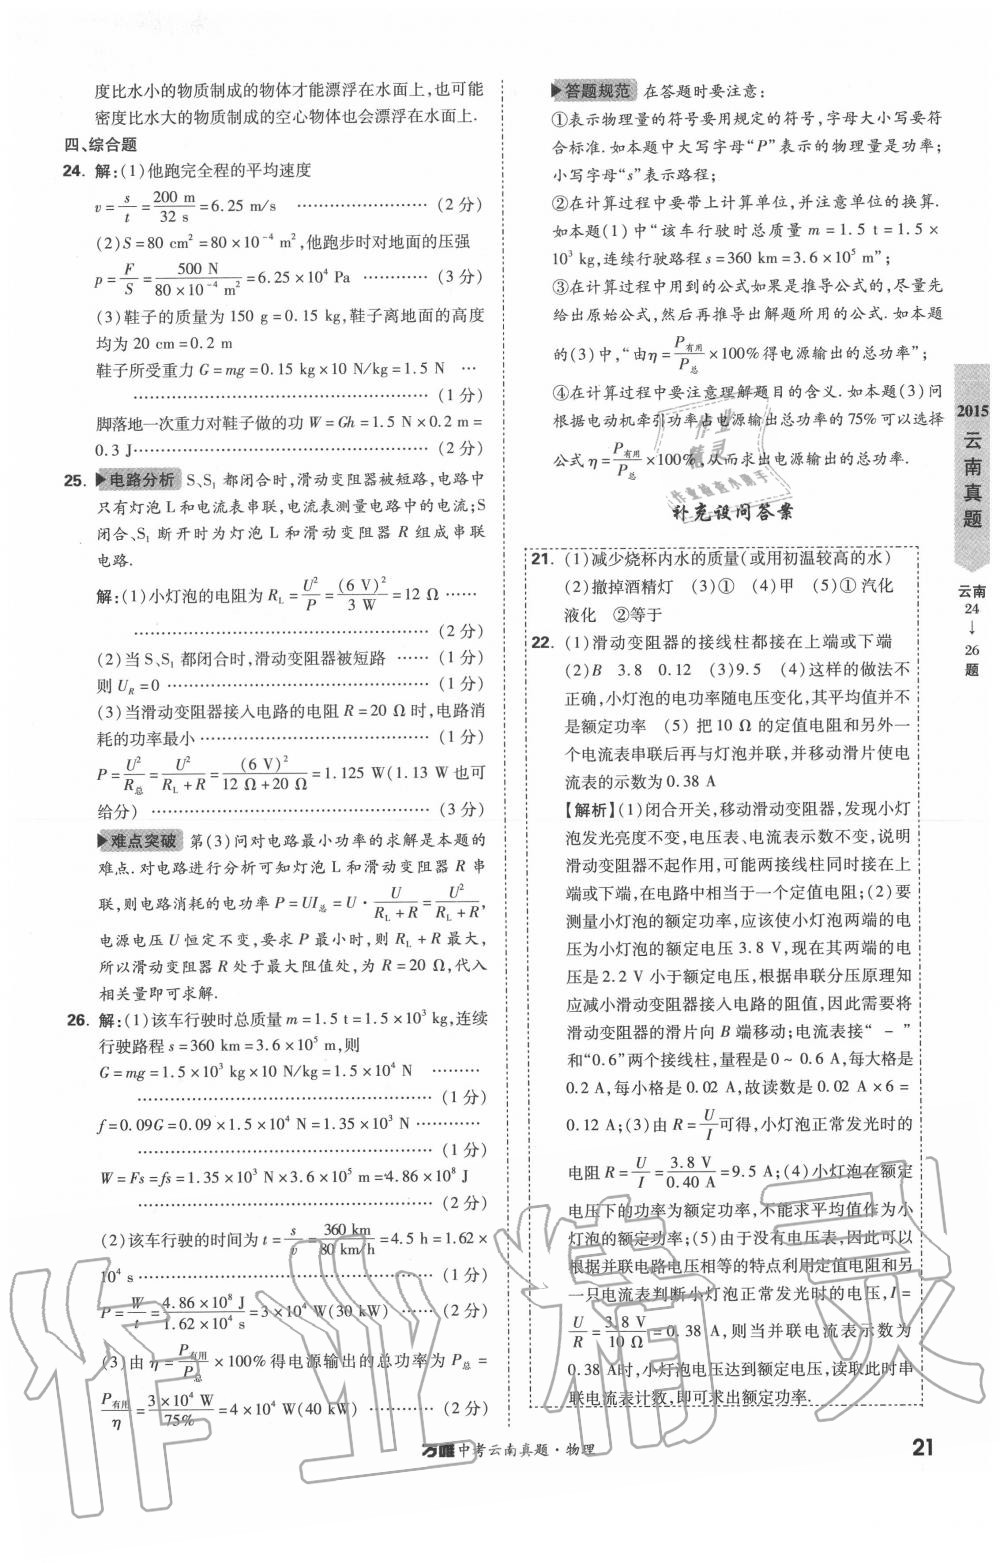 度比水小的物质制成的物体才能漂浮在水面上,也可能
密度比水大的物质制成的空心物体也会漂浮在水面上.
四、综合题
24. 解:(1)他跑完全程的平均速度
v=s/t=200 m/32 s=6.25 m/s ……………………(2分)
(2)S=80 cm²=80×10⁻⁴ m²,他跑步时对地面的压强
p=F/S=500 N/80×10⁻⁴ m²=6.25×10⁴ Pa …………(3分)
(3)鞋子的质量为150 g=0.15 kg,鞋子离地面的高度
均为20 cm=0.2 m
鞋子所受重力G=mg=0.15 kg×10 N/kg=1.5 N …
……………………………………………………(1分)
脚落地一次重力对鞋子做的功W=Gh=1.5 N×0.2 m=
0.3 J………………………………………………(2分)
25. ▶电路分析 S、S₁都闭合时,滑动变阻器被短路,电路中
只有灯泡L和电流表串联,电流表测量电路中的电流;S
闭合、S₁断开时为灯泡L和滑动变阻器R组成串联
电路.
解:(1)小灯泡的电阻为R_L=U²/P=(6 V)²/3 W=12 Ω……
……………………………………………………(2分)
(2)当S、S₁都闭合时,滑动变阻器被短路 ……(1分)
则U_R=0 …………………………………………(1分)
(3)当滑动变阻器接入电路的电阻R=20 Ω时,电路消
耗的功率最小……………………………………(1分)
P=U²/R总=U²/(R_L+R)=(6 V)²/(12 Ω+20 Ω)=1.125 W(1.13 W也可
给分) ……………………………………………(3分)
▶难点突破 第(3)问对电路最小功率的求解是本题的
难点.对电路进行分析可知灯泡L和滑动变阻器R串
联,则电路消耗的电功率P=UI总=U·U/(R_L+R)=U²/(R_L+R),
电源电压U恒定不变,要求P最小时,则R_L+R最大,
所以滑动变阻器R处于最大阻值处,为R=20 Ω,代入
相关量即可求解.
26. 解:(1)该车行驶时总质量m=1.5 t=1.5×10³ kg,连续
行驶路程s=360 km=3.6×10⁵ m,则
G=mg=1.5×10³ kg×10 N/kg=1.5×10⁴ N ………
……………………………………………………(1分)
f=0.09G=0.09×1.5×10⁴ N=1.35×10³ N …………
……………………………………………………(1分)
W=Fs=fs=1.35×10³ N×3.6×10⁵ m=4.86×10⁸ J
……………………………………………………(2分)
(2)该车行驶的时间为t=s/v=360 km/80 km/h=4.5 h=1.62×
10⁴ s………………………………………………(1分)
P=W/t=4.86×10⁸ J/1.62×10⁴ s=3×10⁴ W(30 kW) ……(2分)
(3)由η=P有用/P总×100%得电源输出的总功率为P总=
P有用/η=3×10⁴ W/75%=4×10⁴ W(40 kW) …………(2分)
▶答题规范 在答题时要注意:
①表示物理量的符号要用规定的符号,字母大小写要符
合标准.如本题中大写字母“P”表示的物理量是功率;
小写字母“s”表示路程;
②在计算过程中要带上计算单位,并注意单位的换算.
如本题(1)中“该车行驶时总质量m=1.5 t=1.5×
10³ kg,连续行驶路程s=360 km=3.6×10⁵ m”;
③在计算过程中用到的公式如果是推导公式的,尽量先
给出原始公式,然后再推导出解题所用的公式.如本题
的(3)中,“由η=P有用/P总×100%得电源输出的总功率”;
④在计算过程中要注意理解题目的含义.如本题(3)问
根据电动机牵引功率占电源输出总功率的75%可以选择
公式η=P有用/P总×100%,从而求出电源输出的总功率.
作业
精灵
作业检查小助手
补充设问答案
21. (1)减少烧杯内水的质量(或用初温较高的水)
(2)撤掉酒精灯 (3)① (4)甲 (5)①汽化
液化 ②等于
22. (1)滑动变阻器的接线柱都接在上端或下端
(2)B 3.8 0.12 (3)9.5 (4)这样的做法不
正确,小灯泡的电功率随电压变化,其平均值并不
是额定功率 (5)把10 Ω的定值电阻和另外一
个电流表串联后再与灯泡并联,并移动滑片使电
流表的示数为0.38 A
【解析】(1)闭合开关,移动滑动变阻器,发现小灯
泡发光亮度不变,电压表、电流表示数不变,说明
滑动变阻器不起作用,可能两接线柱同时接在上
端或下端,在电路中相当于一个定值电阻;(2)要
测量小灯泡的额定功率,应该使小灯泡两端的电
压为小灯泡的额定电压3.8 V,现在其两端的电
压是2.2 V小于额定电压,根据串联分压原理知
应减小滑动变阻器接入电路的阻值,因此需要将
滑动变阻器的滑片向B端移动;电流表接“-”
和“0.6”两个接线柱,量程是0~0.6 A,每大格是
0.2 A,每小格是0.02 A,故读数是0.02 A×6=
0.12 A;(3)由R=U/I可得,小灯泡正常发光时的
电阻R=U/I=3.8 V/0.40 A=9.5 A;(4)小灯泡在额定
电压下的功率为额定功率,不能求平均值作为小
灯泡的额定功率;(5)由于没有电压表,因此可以
根据并联电路电压相等的特点利用定值电阻和另
一只电流表判断小灯泡正常发光时的电压,I=
U/R=3.8 V/10 Ω=0.38 A,则当并联电流表示数为
0.38 A时,小灯泡电压达到额定电压,读取此时串
联电流表计数,即可求出额定功率.
2015
云南真题
云南
24
↓
26
题
作业精灵
万唯中考云南真题·物理
21